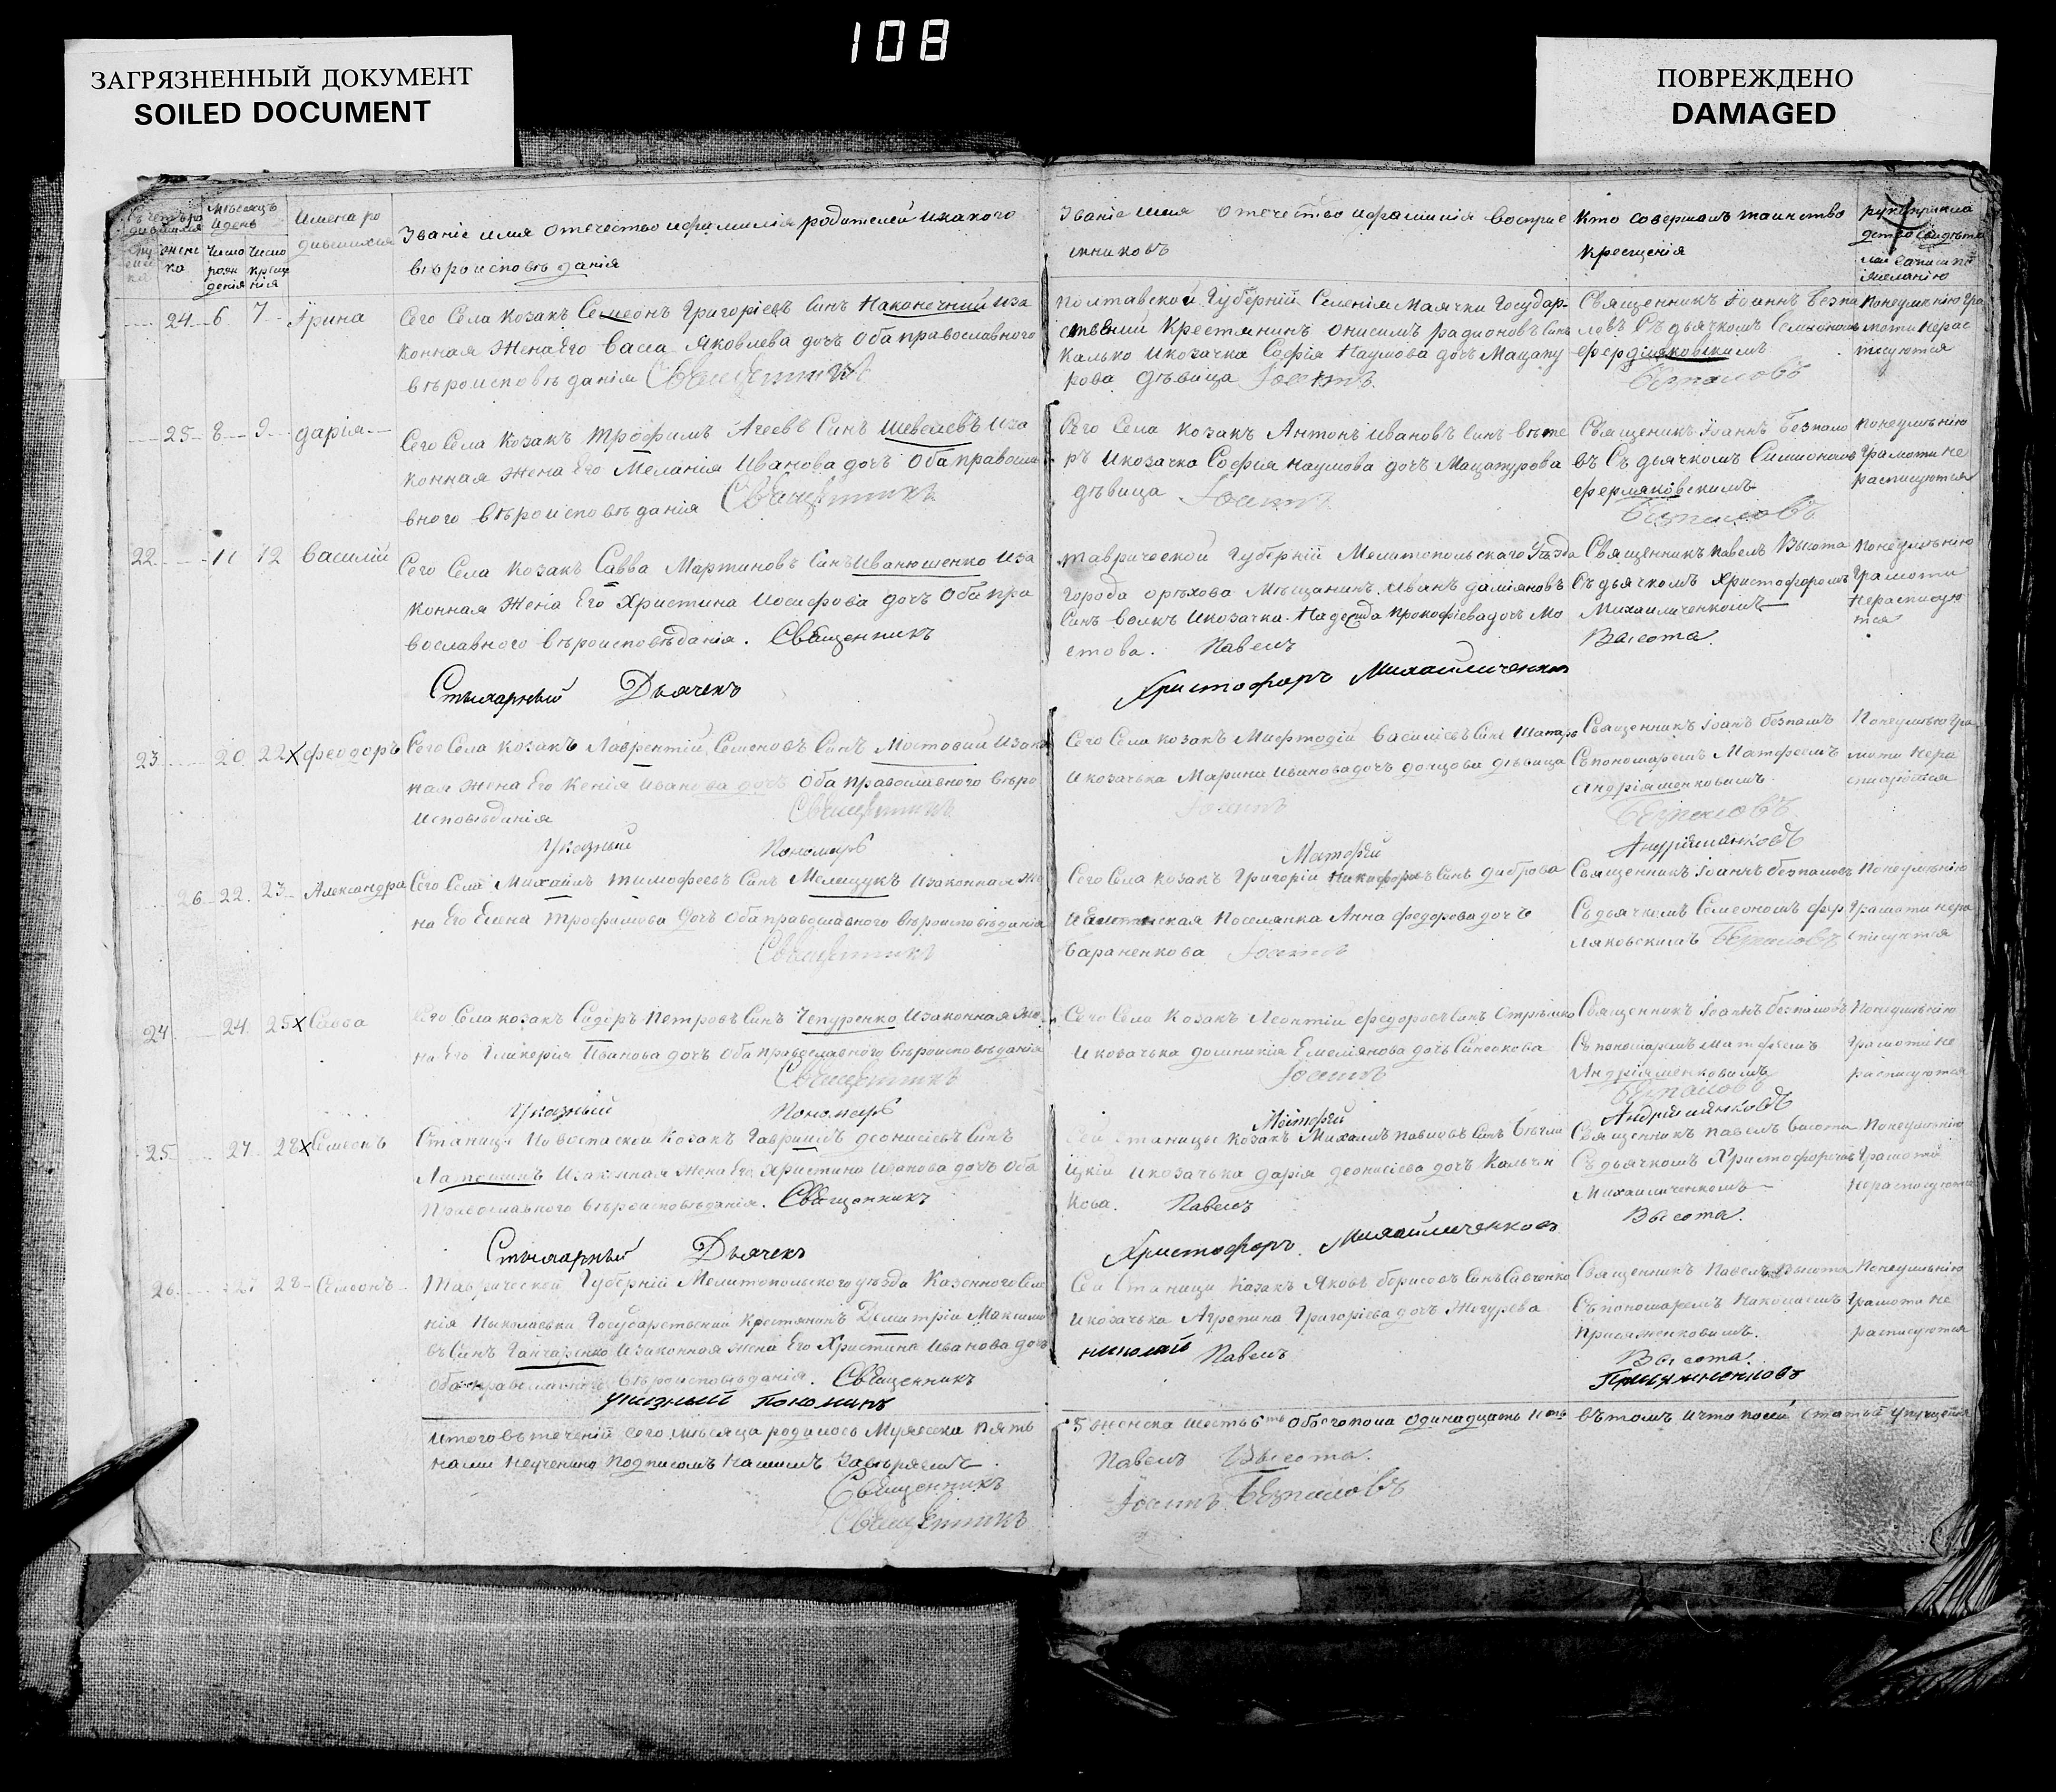 108
ЗАГРЯЗНЕННЫЙ ДОКУМЕНТ
SOILED DOCUMENT
ПОВРЕЖДЕНО
DAMAGED
Имена ро
дившихся
Званіе имя отечество ифамилія родителей икакого
вѣроисповѣданія
Званіе имя отечество ифамилія восприе
мниковъ
Кто совершалъ таинство
крещенія
24 6 7 Ірина
Сего Села козакъ Семеонъ Григоріевъ Синъ Наконечний иза
конная Жена Его Васса Яковлева дочъ Оба православного
вѣроисповѣданія Священникъ
Полтавской Губерніи Селенія Маячки Государ-
ственій Крестянинъ Онисимъ радионовъ Синъ
Калько икозачка Софія Наумова дочъ Мацапу
рова дѣвица Іоаннъ
Священникъ Іоаннъ Безпа
ловъ Съ дьячкомъ Семионом
ферлляковскимъ
Безпаловъ
Понеумѣнію гра
моти нерас
писуются
25 8 9 дарія
Сего Села козакъ Трофимъ Агеевъ Синъ Шевелевъ иза
конная жена Его Меланія Иванова дочъ Оба правосла
вного вѣроисповѣданія Священникъ
Сего Села козакъ Антонъ Ивановъ Синъ вѣте
ръ икозачка Софія Наумова дочъ Мацапурова
дѣвица Іоаннъ
Священикъ Іоаннъ Безпало
въ Съ дьячкомъ Симионом
ферляковскимъ
Безпаловъ
Понеумѣнію
Грамоти не
расписуются
22 11 12 Василій
Сего Села Козакъ Савва Мартиновъ Синъ Иванюшенко иза
конная жена Его Христина Иосифова дочъ Оба пра
вославного вѣроисповѣданія. Священникъ
Таврической Губерніи Мелитопольскаго Уѣзда
города орѣхова Мѣщанинъ Иванъ даміяновъ
Синъ волкъ икозачка Надежда Прокофіева дочъ Мо
стова. Павелъ
Священникъ Павелъ Висота
Съ дьячкомъ Христофоромъ
Михаиличенкомъ
Висота.
Понеумѣнію
Грамоти
Нерасписую
тся
Стихарный Дьячекъ
Христофоръ Михайличенковъ
23 20 22 х феодоръ
Сего Села козакъ Лаврентій Семеновъ Синъ Мостовий изако
ная жена Его Ксенія Иванова дочъ Оба православного вѣро
Исповѣданія Священникъ
Сего Села козакъ Мифтодій Василіевъ Синъ Шатаръ
Икозачька Марина Иванова дочъ донцова дѣвица
Іоаннъ
Священникъ Іоанъ безпалъ
Съ пономаремъ Матфеемъ
андріяшенковимъ
Безпаловъ
Понеумѣнію Гра
моти Нера
списуются
Указный Пономарь
Матфей
Андріяшенковъ
26 22 23 Александра
Сего Села Михаилъ Тимофеевъ Синъ Мелащукъ Изаконная Же
на Его Елена Трофимова дочъ Оба православного вѣроисповѣданія
Священникъ
Сего Села козакъ Григорій Никифоровъ Синъ диброва
Поселянка Анна федорова дочъ
Бараненкова Іоаннъ
Священникъ Іоаннъ безпаловъ
Съ дьячкомъ Семеономъ фер
ляковскимъ Безпаловъ
Понеумѣнію
Грамоти нера
списуются
24 24 25 х Савва
Сего Села козакъ Сидоръ Петровъ Синъ Чепуренко Изаконная Же
на Его Гликерія Иванова дочъ Оба православного вѣроисповѣданія
Священникъ
Сего Села Козакъ Леонтій федоровъ Синъ Стрѣлко
икозачька домникія Емеліянова дочъ Синькова
Іоаннъ
Священникъ Іоаннъ безпаловъ
Съ пономаремъ матфеемъ
Андріяшенковимъ
Безпаловъ
Понеумѣнію
Грамоти Не
расписуются
Указный Пономарь
Матфей
Андріяшенковъ
25 27 28 х Семеонъ
Станици Новоспаской Козакъ Гавриілъ деонисіевъ Синъ
Латошинъ Изаконная Жена Его Христина Иванова дочъ Оба
Православного вѣроисповѣданія. Священникъ
Сей Станицы Козакъ Михаилъ Павловъ Синъ
цкій икозачька дарія деонисіева дочъ Кальчен
кова. Павелъ
Священникъ Павелъ Висота
Съ дьячкомъ Христофоромъ
Михаиличенкомъ
Висота.
Понеумѣнію
Грамоти
Нерасписуются
Стихарный Дьячекъ
Христофоръ Михайличенковъ
26 27 28 Семеонъ
Таврической Губерніи Мелитопольского уѣзда Казенного Селе
нія Николаевки Государственій Крестянинъ Димитрій Максимо
въ Синъ Ганчаренко Изаконная жена Его Христина Иванова дочъ
Оба православного Вѣроисповѣданія. Священникъ
Сей Станици Казакъ Яковъ борисовъ Синъ Савченко
икозачька Агрепина Григоріева дочъ Жегурева
Николай Павелъ
Священникъ Павелъ Висота
Съ пономаремъ Николаемъ
Присяженковимъ.
Висота.
Присяженковъ
Понеумѣнію
Грамоти Не
расписуются
указный Пономарь
Итого въ теченій сего мѣсяца родилось Мужеска Пять
5 женска шесть 6ть Обоего пола Одинадцать 11ть
въ томъ ичто посей статьи упущенія
нами неученино Подписомъ нашимъ Завѣряемъ.
Священникъ Павелъ Висота.
Священникъ Іоаннъ Безпаловъ